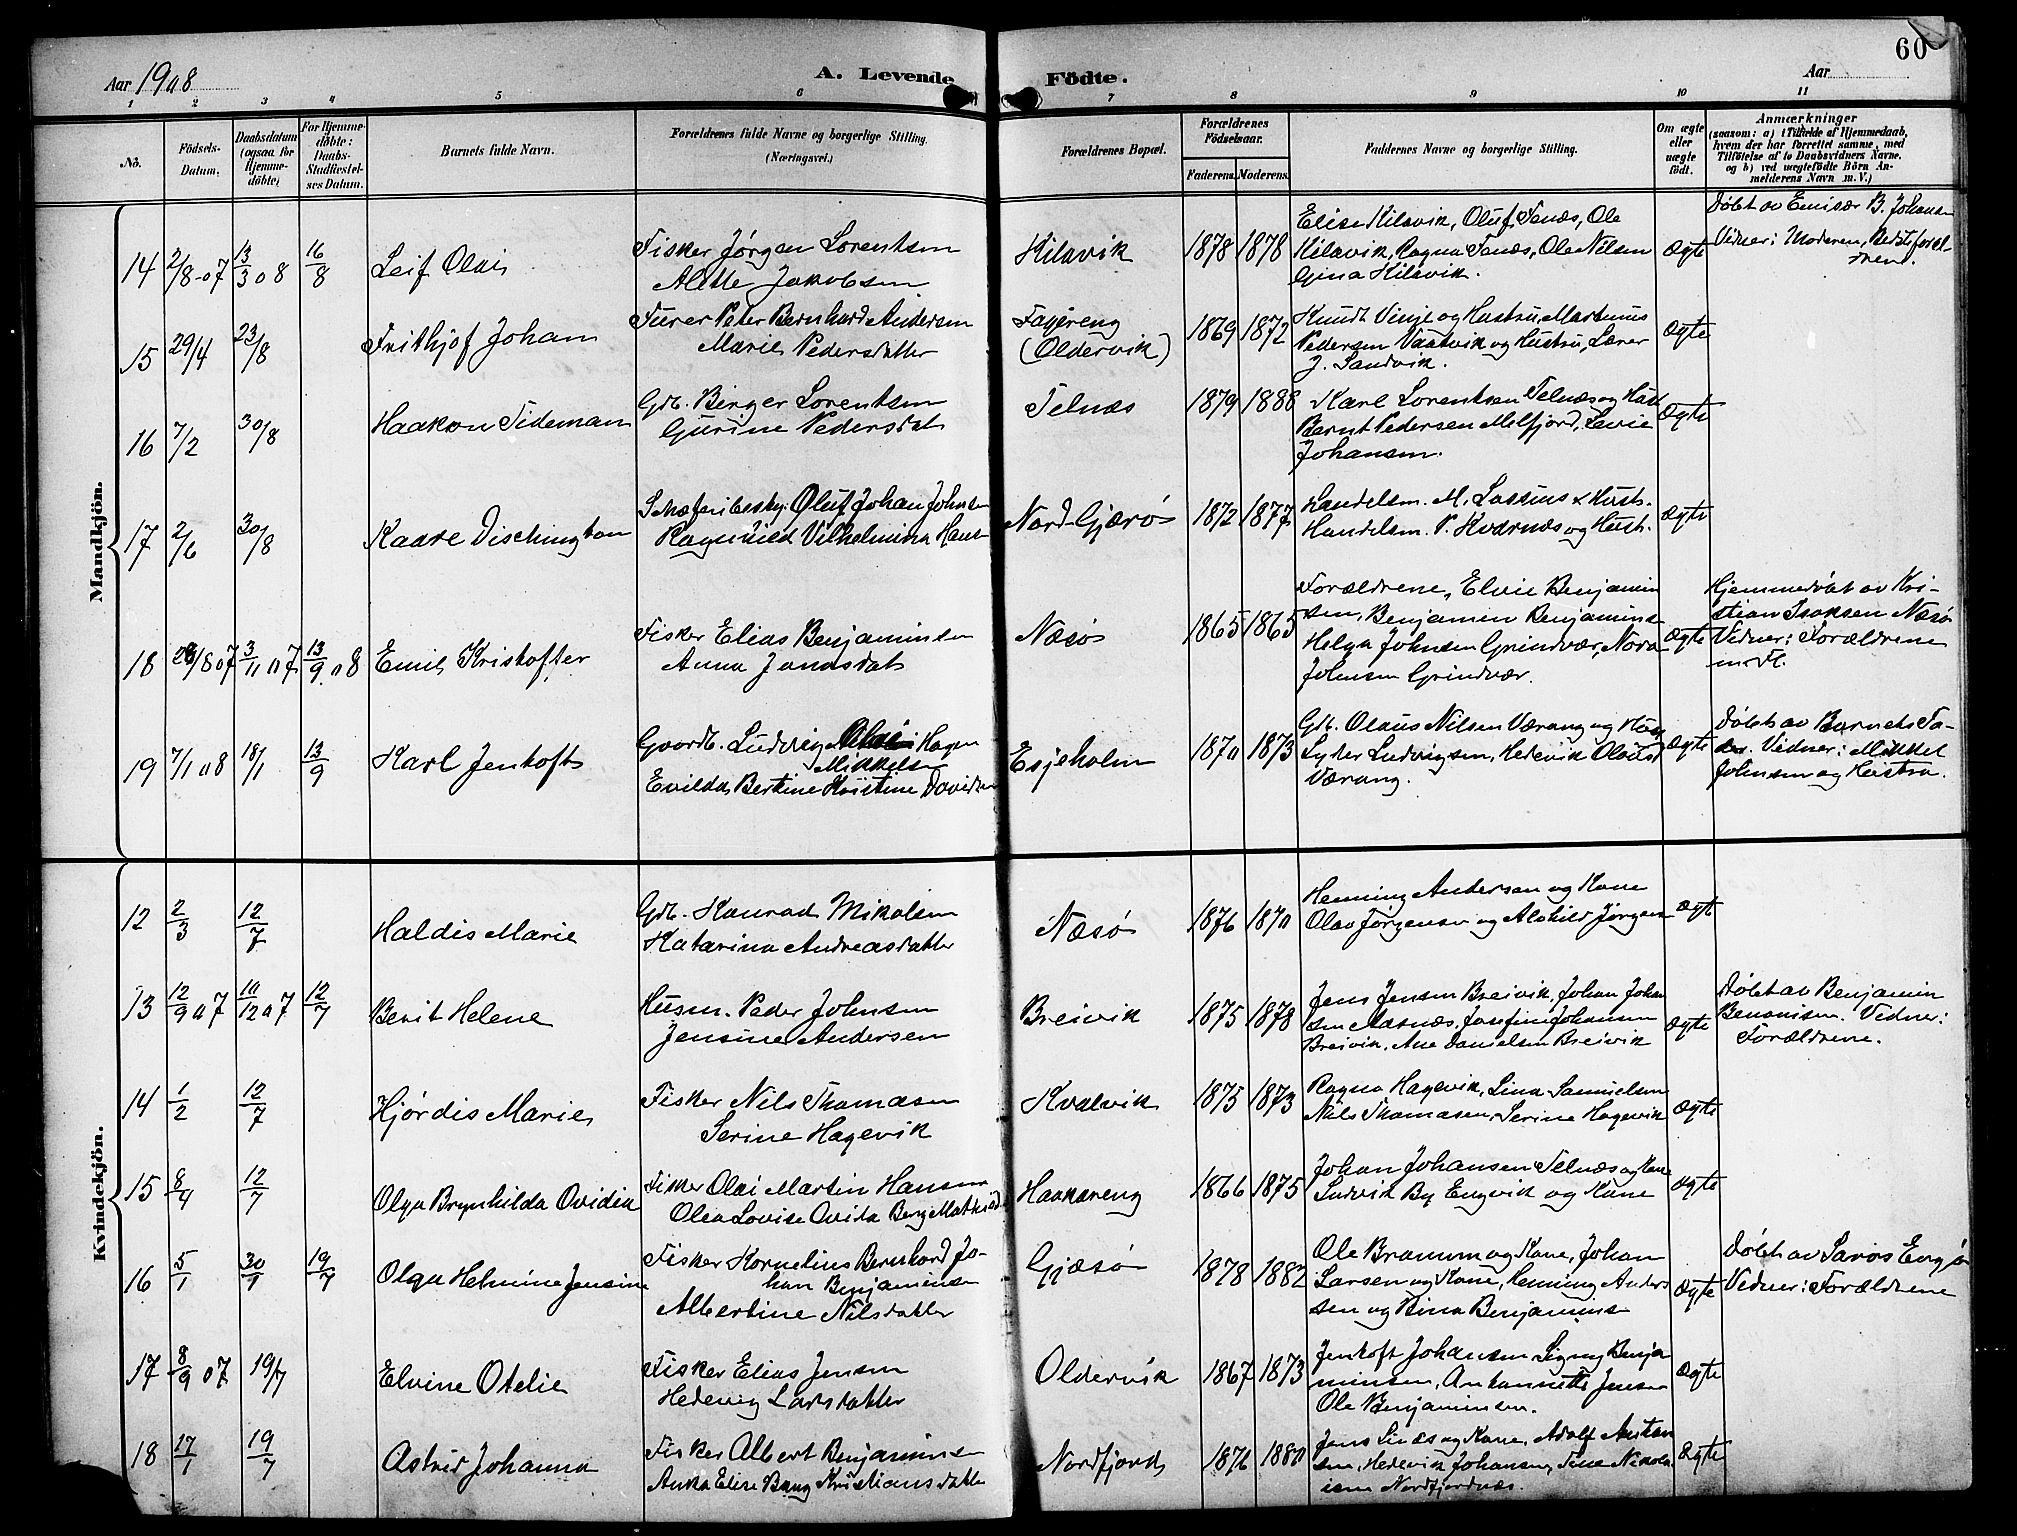 60
Aar 1908
A. Levende
Födte.
Aar
1 2 3 4 5 6 7 8 9 10 11
No.
Födsels-Datum.
Daabsdatum (ogsaa for Hjemme-döbte)
For Hjemme-döbte: Daabs-Stadfæstel-ses Datum.
Barnets fulde Navn.
Forældrenes fulde Navne og borgerlige Stilling.
(Næringsvei.)
Forældrenes Bopæl.
Forældrenes Födselsaar.
Faderens. Moderens.
Faddernes Navne og borgerlige Stilling.
Om ægte eller uægte födt.
Anmærkninger
(saasom: a) i Tilfælde af Hjemmedaab,
hvem der har forrettet samme, med
Tilföielse af to Daabsvidners Navne.
og b) ved uægtefödte Börn An-
melderens Navn m. V.)
Mandkjön.
14 2/8-07 13/3 08 16/8
Leif Olai
Fisker Jørgen Lorentsen
Alette Jakobsen
Kilavik
1878 1878
Elise Kilavik, Oluf Tenæs, Ole
Kilavik, Ragna Tenæs, Ole Nilsen
Gina Kilavik.
Ægte
Døbt av Emisær B. Johansen
Vidner: Moderen, Bedstforæl-
drene.
15 29/4 23/8
Frithjof Johan
Furer Peter Bernhard Andersen
Marie Pedersdatter
Fagereng
(Oldervik)
1869 1872
Knudt Vinje og Hustru, Martinus
Pedersen Vaatvik og Hustru, Lærer
J. Sandvik.
Ægte
16 7/2 30/8
Haakon Tideman
Gdb. Birger Lorentsen
Gurine Pedersdat
Telnæs
1879 1888
Karl Lorentsen Telnæs og Hust
Bernt Pedersen Melfjord, Levie
Johansen.
Ægte
17 2/6 30/8
Kaare Dischington
Oluf Johan Johnsen
Ragnhild Vilhelmina Hans
Nord-Gjærø
1872 1877
Handelsm. M. Lassius & Hust.
Handelsm. P. Kvarnæs og Hust.
Ægte
18 28/8 07 3/11 07 13/9 08
Emil Kristoffer
Fisker Elias Benjaminsen
Anna Jonasdat
Næsø
1865 1865
Forældrene, Elvie Benjamin
sen, Benjamin Benjamins
Helga Johnsen Grindvær, Nora
Johnsen Grindvær.
Ægte
Hjemmedøbt av Kri-
stian Isaksen Næsø
Vidner: Forældrene
m. fl.
19 7/1 08 18/1 13/9
Karl Jentoft
Gaardb. Ludvig Hagen
Mikkelsen
Evilda Bertine Kristine Davidsen
Esjeholm
1870 1873
Gdb. Olaus Nilsen Værang og Hust
Lyder Ludvigsen, Hedevik Olausd
Værang.
Ægte
Døbt av Barnets Fa-
der. Vidner: Mikkel
Johnsen og Hustru.
Kvindekjön.
12 2/3 12/7
Haldis Marie
Gdb. Konrad Mikalsen
Katarina Andreasdatter
Næsø
1876 1870
Henning Andersen og Kone
Olav Jørgensen og Alvhild Jørgens
Ægt
13 12/9 07 10/12 07 12/7
Berit Helene
Husm. Peder Johnsen
Jensine Andersen
Breivik
1875 1878
Jens Jensen Breivik, Johan Johan
sen Aasnæs, Josefine Johansen
Breivik, Ane Danielsen Breivik
Ægte
Døbt av Benjamin
Benonisen. Vidner:
Forældrene.
14 1/2 12/7
Hjørdis Marie
Fisker Nils Thomasen
Serine Hagevik
Kvalvik
1875 1873
Ragna Hagevik, Lina Samuelsen
Nils Thomasen, Serine Hagevik
Ægte
15 8/4 12/7
Olga Brynhilda Ovidia
Fisker Olai Martin Hansen
Olea Lovise Ovida Berg
Haakareng
1866 1875
Johan Johansen Telnæs og Kone
Ludvik By Engvik og Kone
Ægte
16 5/1 30/1 19/7
Olga Helmine Jensine
Fisker Kornelius Bernhard Jo-
han Benjaminsen
Albertine Nilsdatter
Gjæsø
1878 1882
Ole Bramm og Kone, Johan
Larsen og Kone, Henning Ander
sen og Bina Benjamins
Ægte
Døbt av Engø
Vidner: Forældrene
17 8/9 07 19/7
Elvine Otelie
Fisker Elias Jensen
Hedevig Larsdatter
Oldervik
1867 1873
Jentoft Johansen, Signy Benja
minsen, Antonette Jensen
Ole Benjaminsen.
Ægte
18 17/1 19/7
Astrid Johanna
Fisker Albert Benjaminsen
Anna Elise Bang Kristiansdatter
Nordfjord
1876 1880
Jens og Kone, Adolf
sen, Hedevik Johansen, Tina Nikola
isen Nordfjordnæs.
Ægte